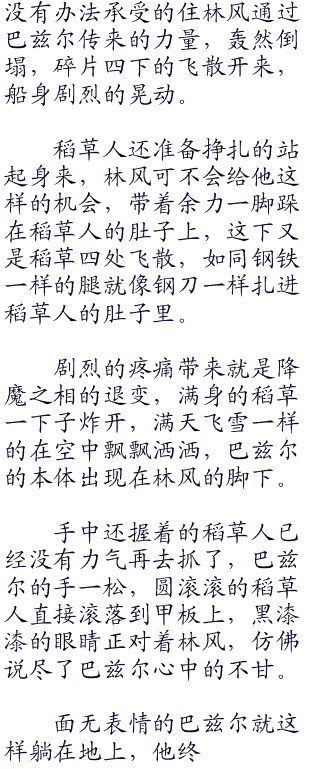 没有办法承受的住林风通过
巴兹尔传来的力量，轰然倒
塌，碎片四下的飞散开来，
船身剧烈的晃动。
稻草人还准备挣扎的站
起身来，林风可不会给他这
样的机会，带着余力一脚跺
在稻草人的肚子上，这下又
是稻草四处飞散，如同钢铁
一样的腿就像钢刀一样扎进
稻草人的肚子里。
剧烈的疼痛带来就是降
魔之相的退变，满身的稻草
一下子炸开，满天飞雪一样
的在空中飘飘洒洒，巴兹尔
的本体出现在林风的脚下。
手中还握着的稻草人已
经没有力气再去抓了，巴兹
尔的手一松，圆滚滚的稻草
人直接滚落到甲板上，黑漆
漆的眼睛正对着林风，仿佛
说尽了巴兹尔心中的不甘。
面无表情的巴兹尔就这
样躺在地上，他终